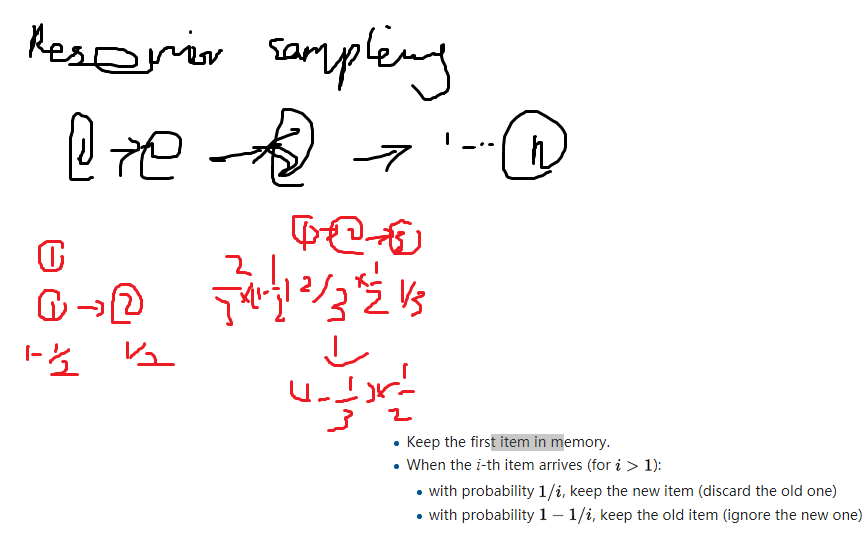 Reservoir sampling
1 → 2 → 3 → ... n
1
1 → 2
1-1/2 1/2
1 → 2 → 3
2/3 x (1-1/2) 2/3 x 1/2 1/3
(1-1/3) x 1/2
• Keep the first item in memory.
• When the i-th item arrives (for i > 1):
• with probability 1/i, keep the new item (discard the old one)
• with probability 1 − 1/i, keep the old item (ignore the new one)